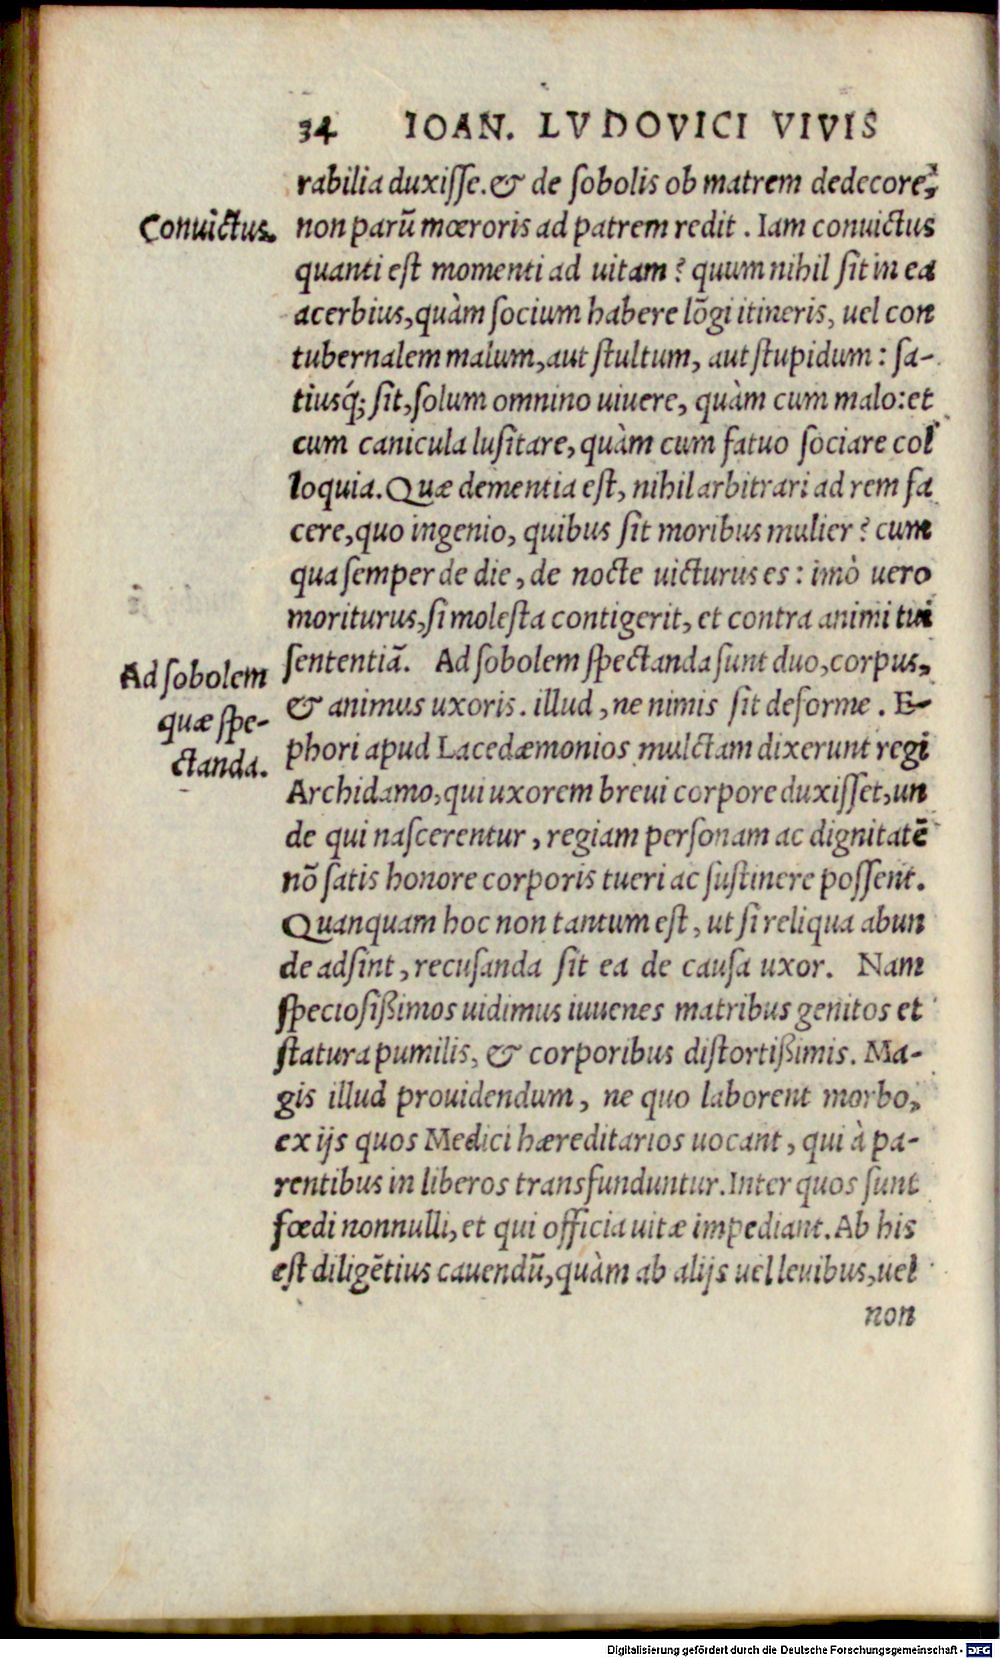 34 IOAN. LVDOVICI VIVIS
rabilia duxisse. & de sobolis ob matrem dedecore,
Conuictus.
non parū mœroris ad patrem redit. Iam conuictus
quanti est momenti ad uitam? quum nihil sit in ea
acerbius, quàm socium habere lōgi itineris, uel con
tubernalem malum, aut stultum, aut stupidum: sa-
tiusq́; sit, solum omnino uiuere, quàm cum malo: et
cum canicula lusitare, quàm cum fatuo sociare col
loquia. Quæ dementia est, nihil arbitrari ad rem fa
cere, quo ingenio, quibus sit moribus mulier? cum
qua semper de die, de nocte uicturus es: imò uero
moriturus, si molesta contigerit, et contra animi tui
sententiā. Ad sobolem spectanda sunt duo, corpus,
Ad sobolem
quæ spe-
ctanda.
& animus uxoris. illud, ne nimis sit deforme. E-
phori apud Lacedæmonios mulctam dixerunt regi
Archidamo, qui uxorem breui corpore duxisset, un
de qui nascerentur, regiam personam ac dignitatē
nō satis honore corporis tueri ac sustinere possent.
Quanquam hoc non tantum est, ut si reliqua abun
de adsint, recusanda sit ea de causa uxor. Nam
speciosißimos uidimus iuuenes matribus genitos et
statura pumilis, & corporibus distortißimis. Ma-
gis illud prouidendum, ne quo laborent morbo,
ex ijs quos Medici hæreditarios uocant, qui à pa-
rentibus in liberos transfunduntur. Inter quos sunt
fœdi nonnulli, et qui officia uitæ impediant. Ab his
est diligētius cauendū, quàm ab alijs uel leuibus, uel
non
Digitalisierung gefördert durch die Deutsche Forschungsgemeinschaft - DFG